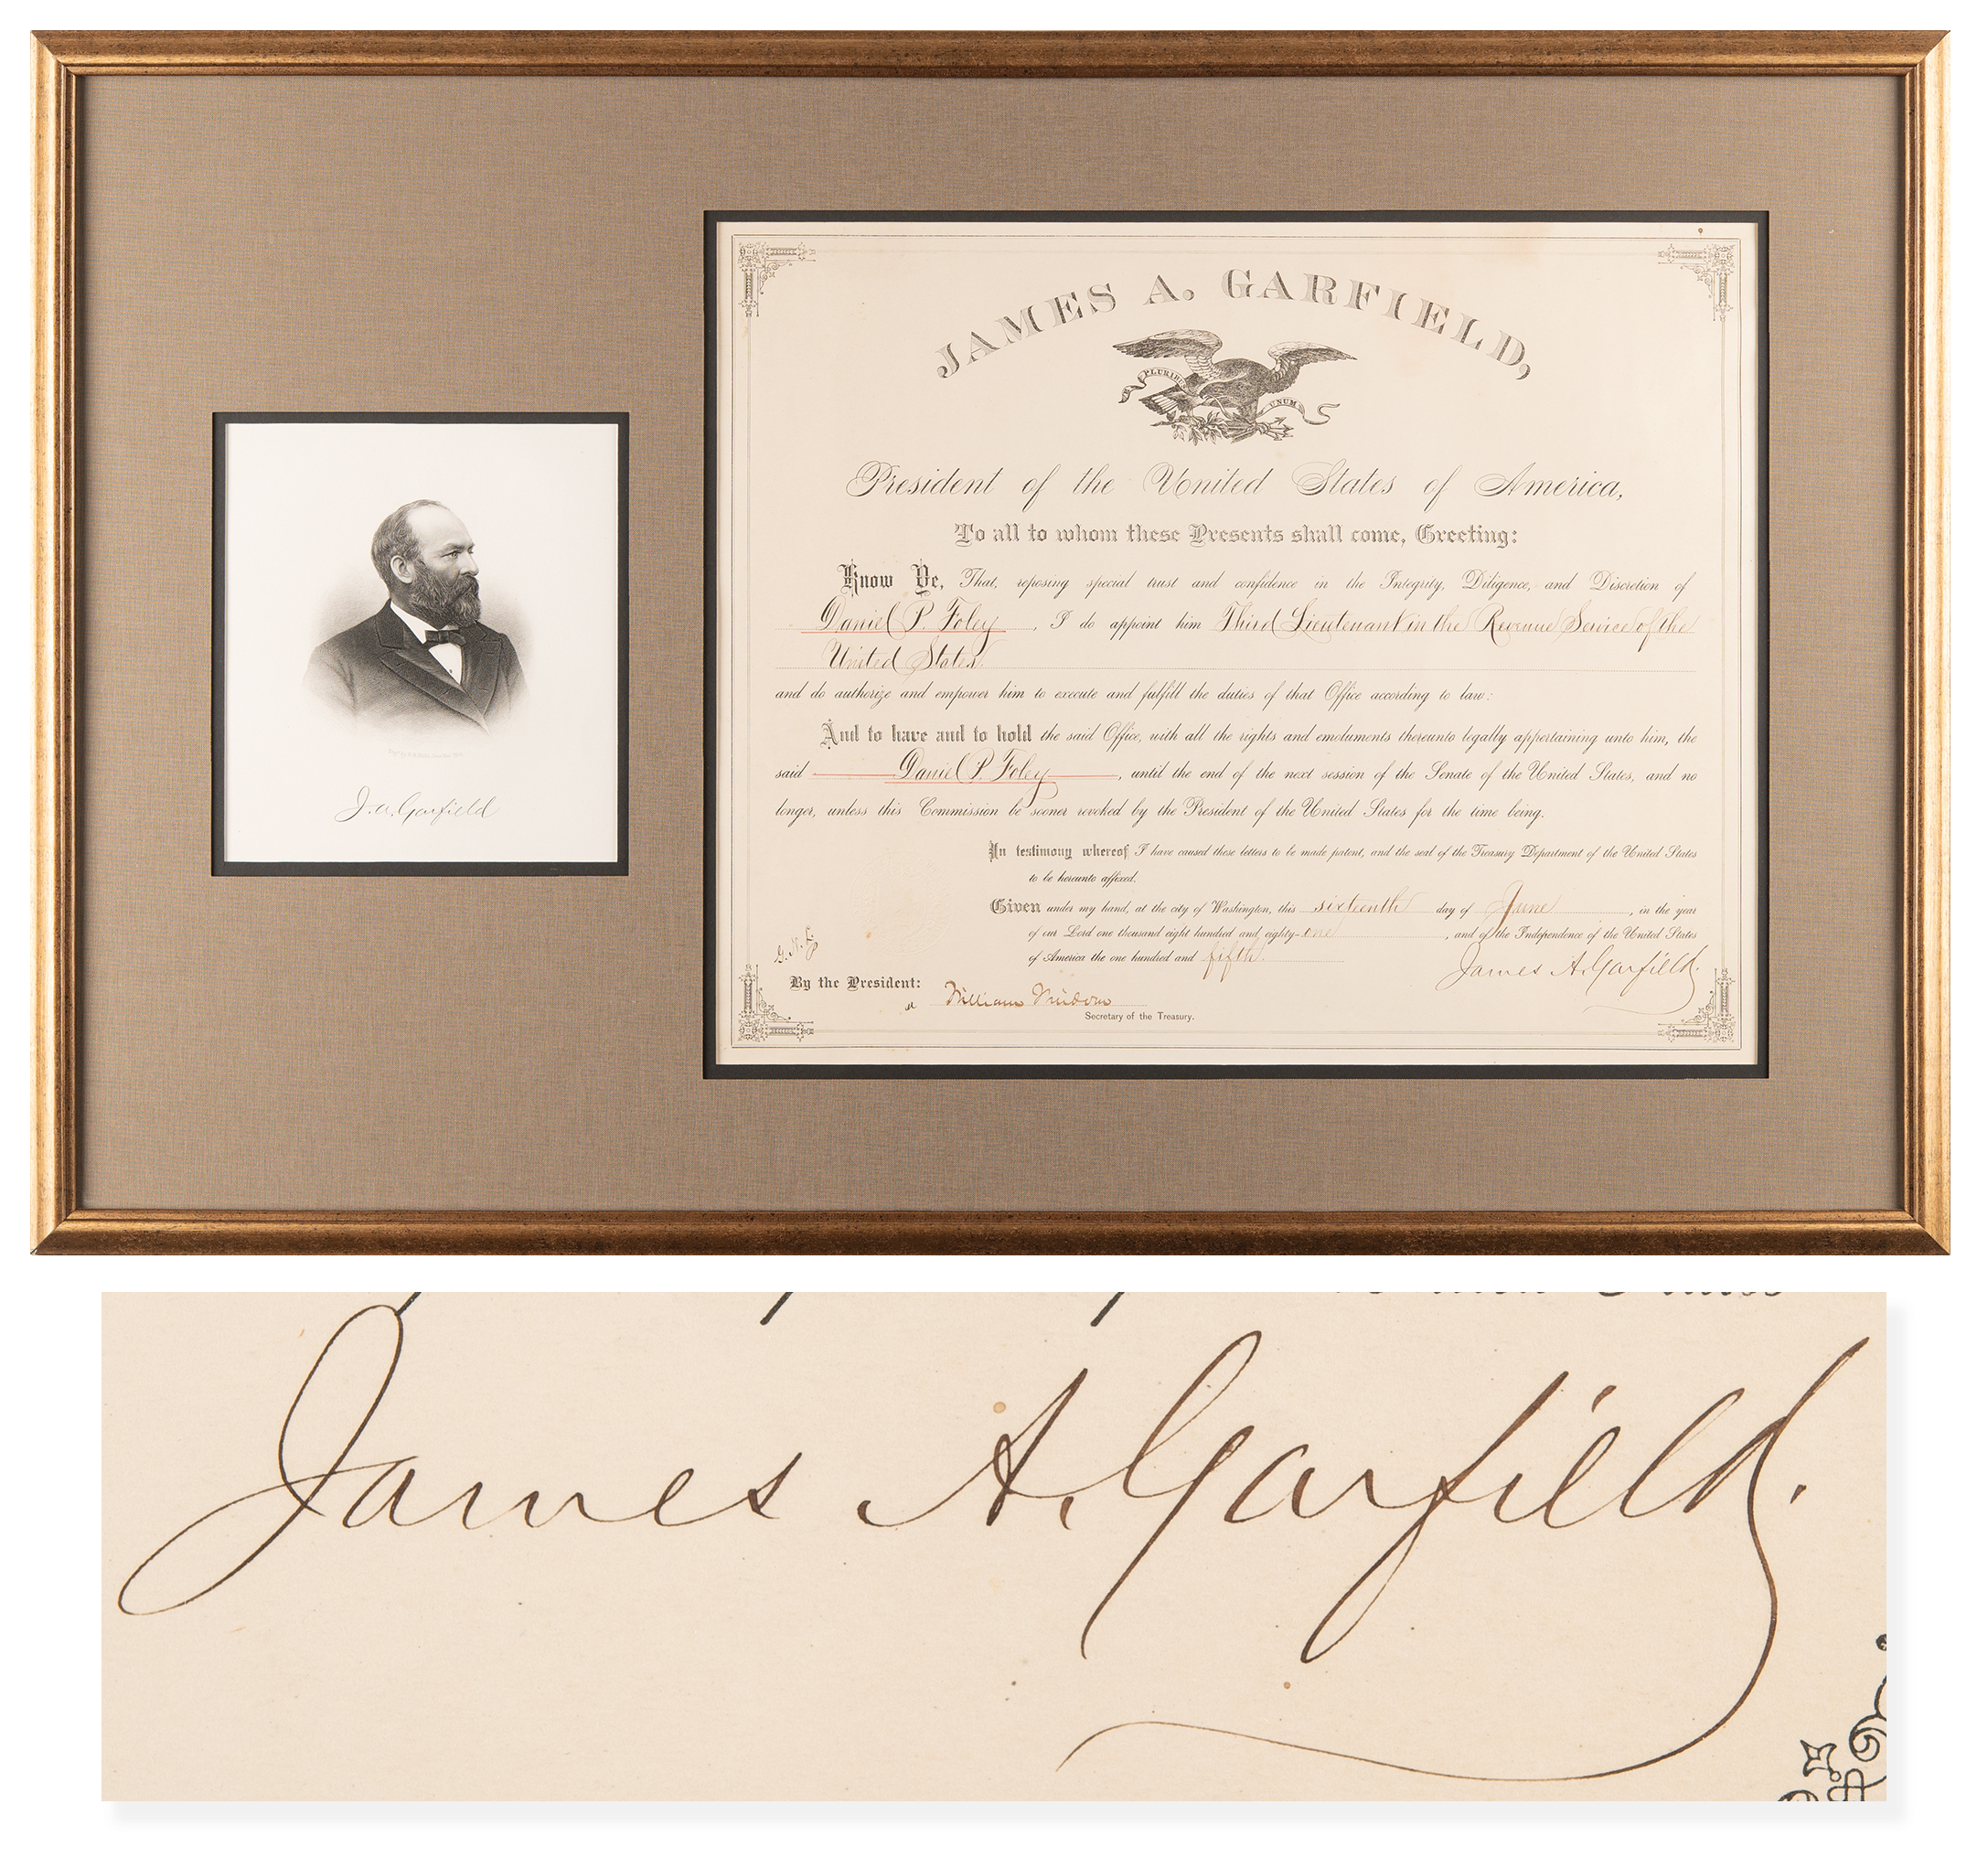 J. A. Garfield
JAMES A. GARFIELD,
PLURIBUS
UNUM
President of the United States of America,
To all to whom these Presents shall come, Greeting:
Know Ye, That, reposing special trust and confidence in the Integrity, Diligence, and Discretion of
Daniel P. Foley, I do appoint him Third Lieutenant in the Revenue Service of the
United States.
and do authorize and empower him to execute and fulfill the duties of that Office according to law:
And to have and to hold the said Office, with all the rights and emoluments thereunto legally appertaining unto him, the
said Daniel P. Foley, until the end of the next session of the Senate of the United States, and no
longer, unless this Commission be sooner revoked by the President of the United States for the time being.
In testimony whereof I have caused these letters to be made patent, and the seal of the Treasury Department of the United States
to be hereunto affixed.
Given under my hand, at the city of Washington, this sixteenth day of June, in the year
of our Lord one thousand eight hundred and eighty-one, and of the Independence of the United States
of America the one hundred and fifth.
James A. Garfield.
By the President:
William Windom
Secretary of the Treasury.
James A. Garfield.